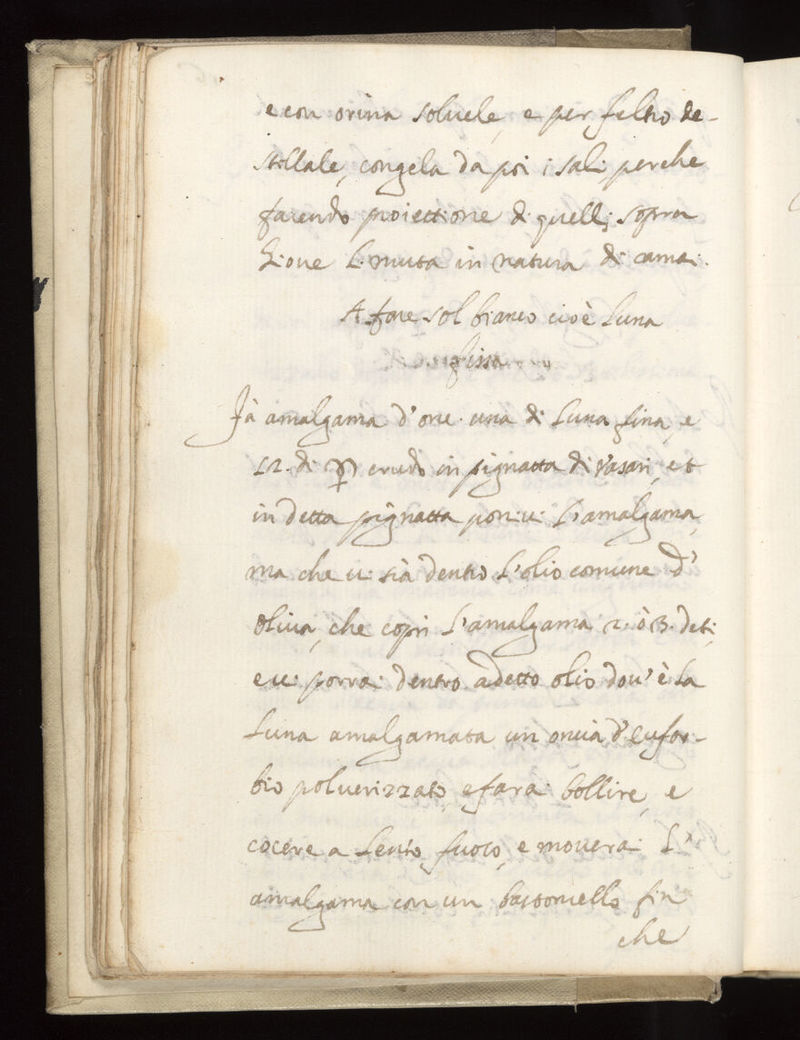 e con orina soluele, e per feltro de-
stillale, congela da poi i sali, perche
facendo proiettione di quelli sopra
Gioue l. muta in natura di
A fare sol bianco cioè Luna
fissa
Fà amalgama d'onc. una di Luna fina, e
12. di ☿ crudo in pignatta di Vasari, et
in detta pignatta poni ui l'amalgama,
ma che ui sià dentro l'olio comune d'
oliua, che copri l'amalgama 2. ò 3. deti,
e ui porrai dentro a detto olio dou' è la
Luna amalgamata un oncia d'eufor-
bio poluerizzato, e farai bollire, e
cocere a lento fuoco, e mouerai l'
amalgama con un bastoncello fin
che